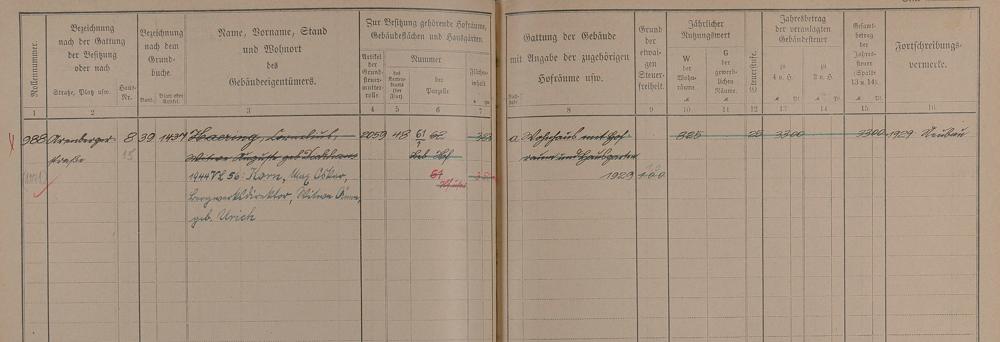 Rollennummer
Bezeichnung
nach der Gattung
der Besitzung
oder nach
Straße, Platz usw.
Haus-
Nr.
Bezeichnung
nach dem
Grund-
buche.
Band
Blatt oder
Artikel
Name, Vorname, Stand
und Wohnort
des
Gebäudeeigentümers.
Zur Besitzung gehörende Hofräume,
Gebäudeflächen und Hausgärten.
Artikel
der
Grund-
steuer-
mutter-
rolle
Nummer
des
Karten-
blatts
(der
Flur)
der
Parzelle
Flächen-
inhalt
Gattung der Gebäude
mit Angabe der zugehörigen
Hofräume usw.
Grund
der
etwai-
gen
Steuer-
freiheit.
Jährlicher
Nutzungswert
W
der
Wohn-
räume.
G
der
gewerb-
lichen
Räume.
Steuerstufe.
Jahresbetrag
der veranlagten
Gebäudesteuer
zu
4 v. H.
zu
2 v. H.
Gesamt-
betrag
der
Jahres-
steuer
(Spalte
13 u. 14).
Fortschreibungs-
vermerke.
1 2 3 4 5 6 7 8 9 10 11 12 13 14 15 16
988 Arenberger- 8 39 1437 Haering, Cornelius, 2059 48 61 62 a Wohnhaus mit Hof- 825 25 3300 3300 1929 Neubau
straße 15 Witwe Auguste geb. raum und Hausgarten
1944 VL 56: Korn, Max Oskar, 61 1929
Bergwerksdirektor, Witwe Änne,
geb. Urich